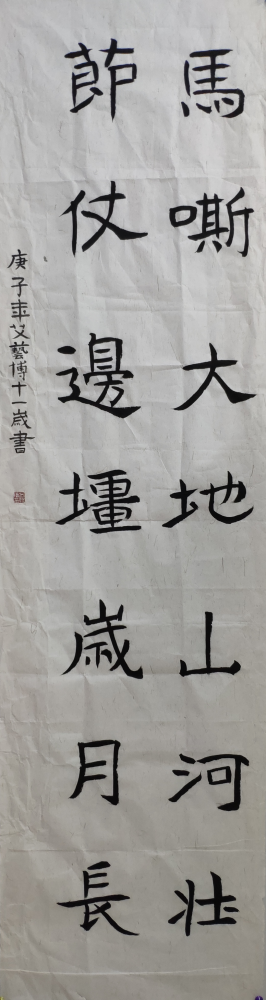 馬嘶大地山河壮
節仗邊壃歲月長
庚子年艾藝博十一歲書